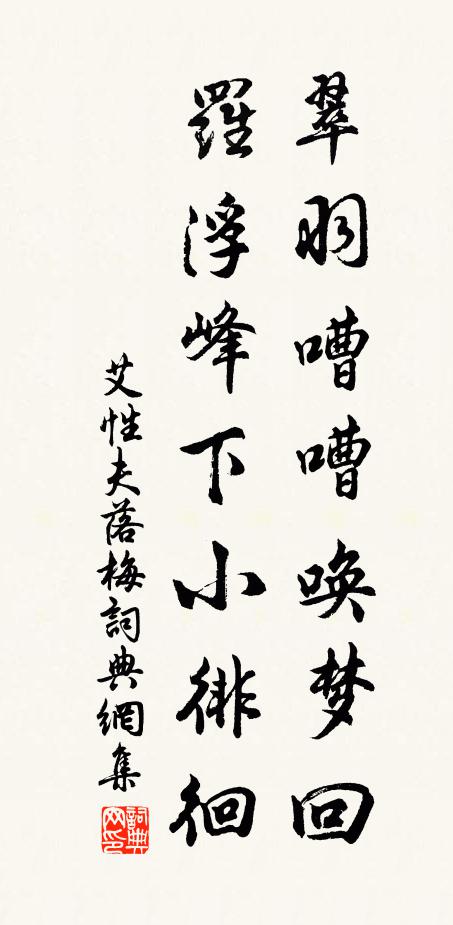 翠羽嘈嘈唤梦回
羅浮峰下小徘徊
艾性夫落梅詞典網集
詞典网印